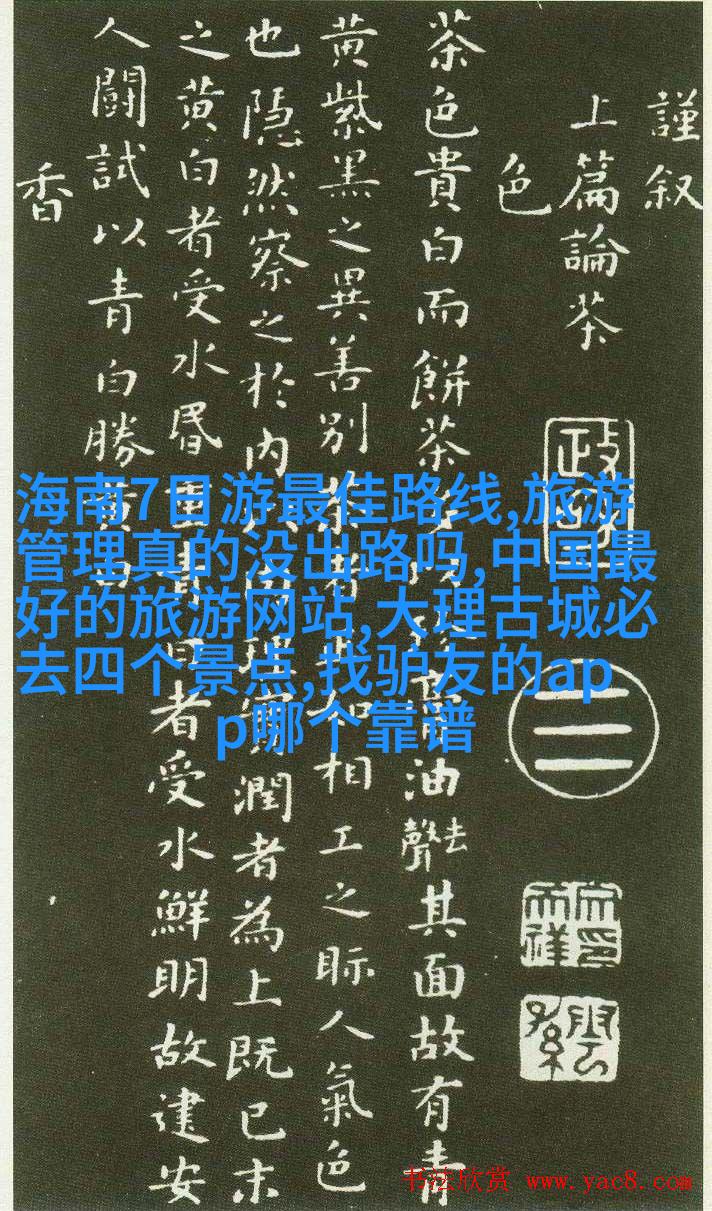 謹叙
上篇論茶
色
茶色貴白而餅茶以膏油去聲其面故有青
黄紫黑之異善别茶者如相工之眎人氣色
也隐然察之於内肉理實潤者為上既已末
之黄白者受水昬重青白者受水鮮明故建安
人鬭試以青白勝黄白
香
海南7日游最佳路线,旅游
管理真的没出路吗,中国最
好的旅游网站,大理古城必
去四个景点,找驴友的ap
p哪个靠谱
书法欣赏 www.yac8.com